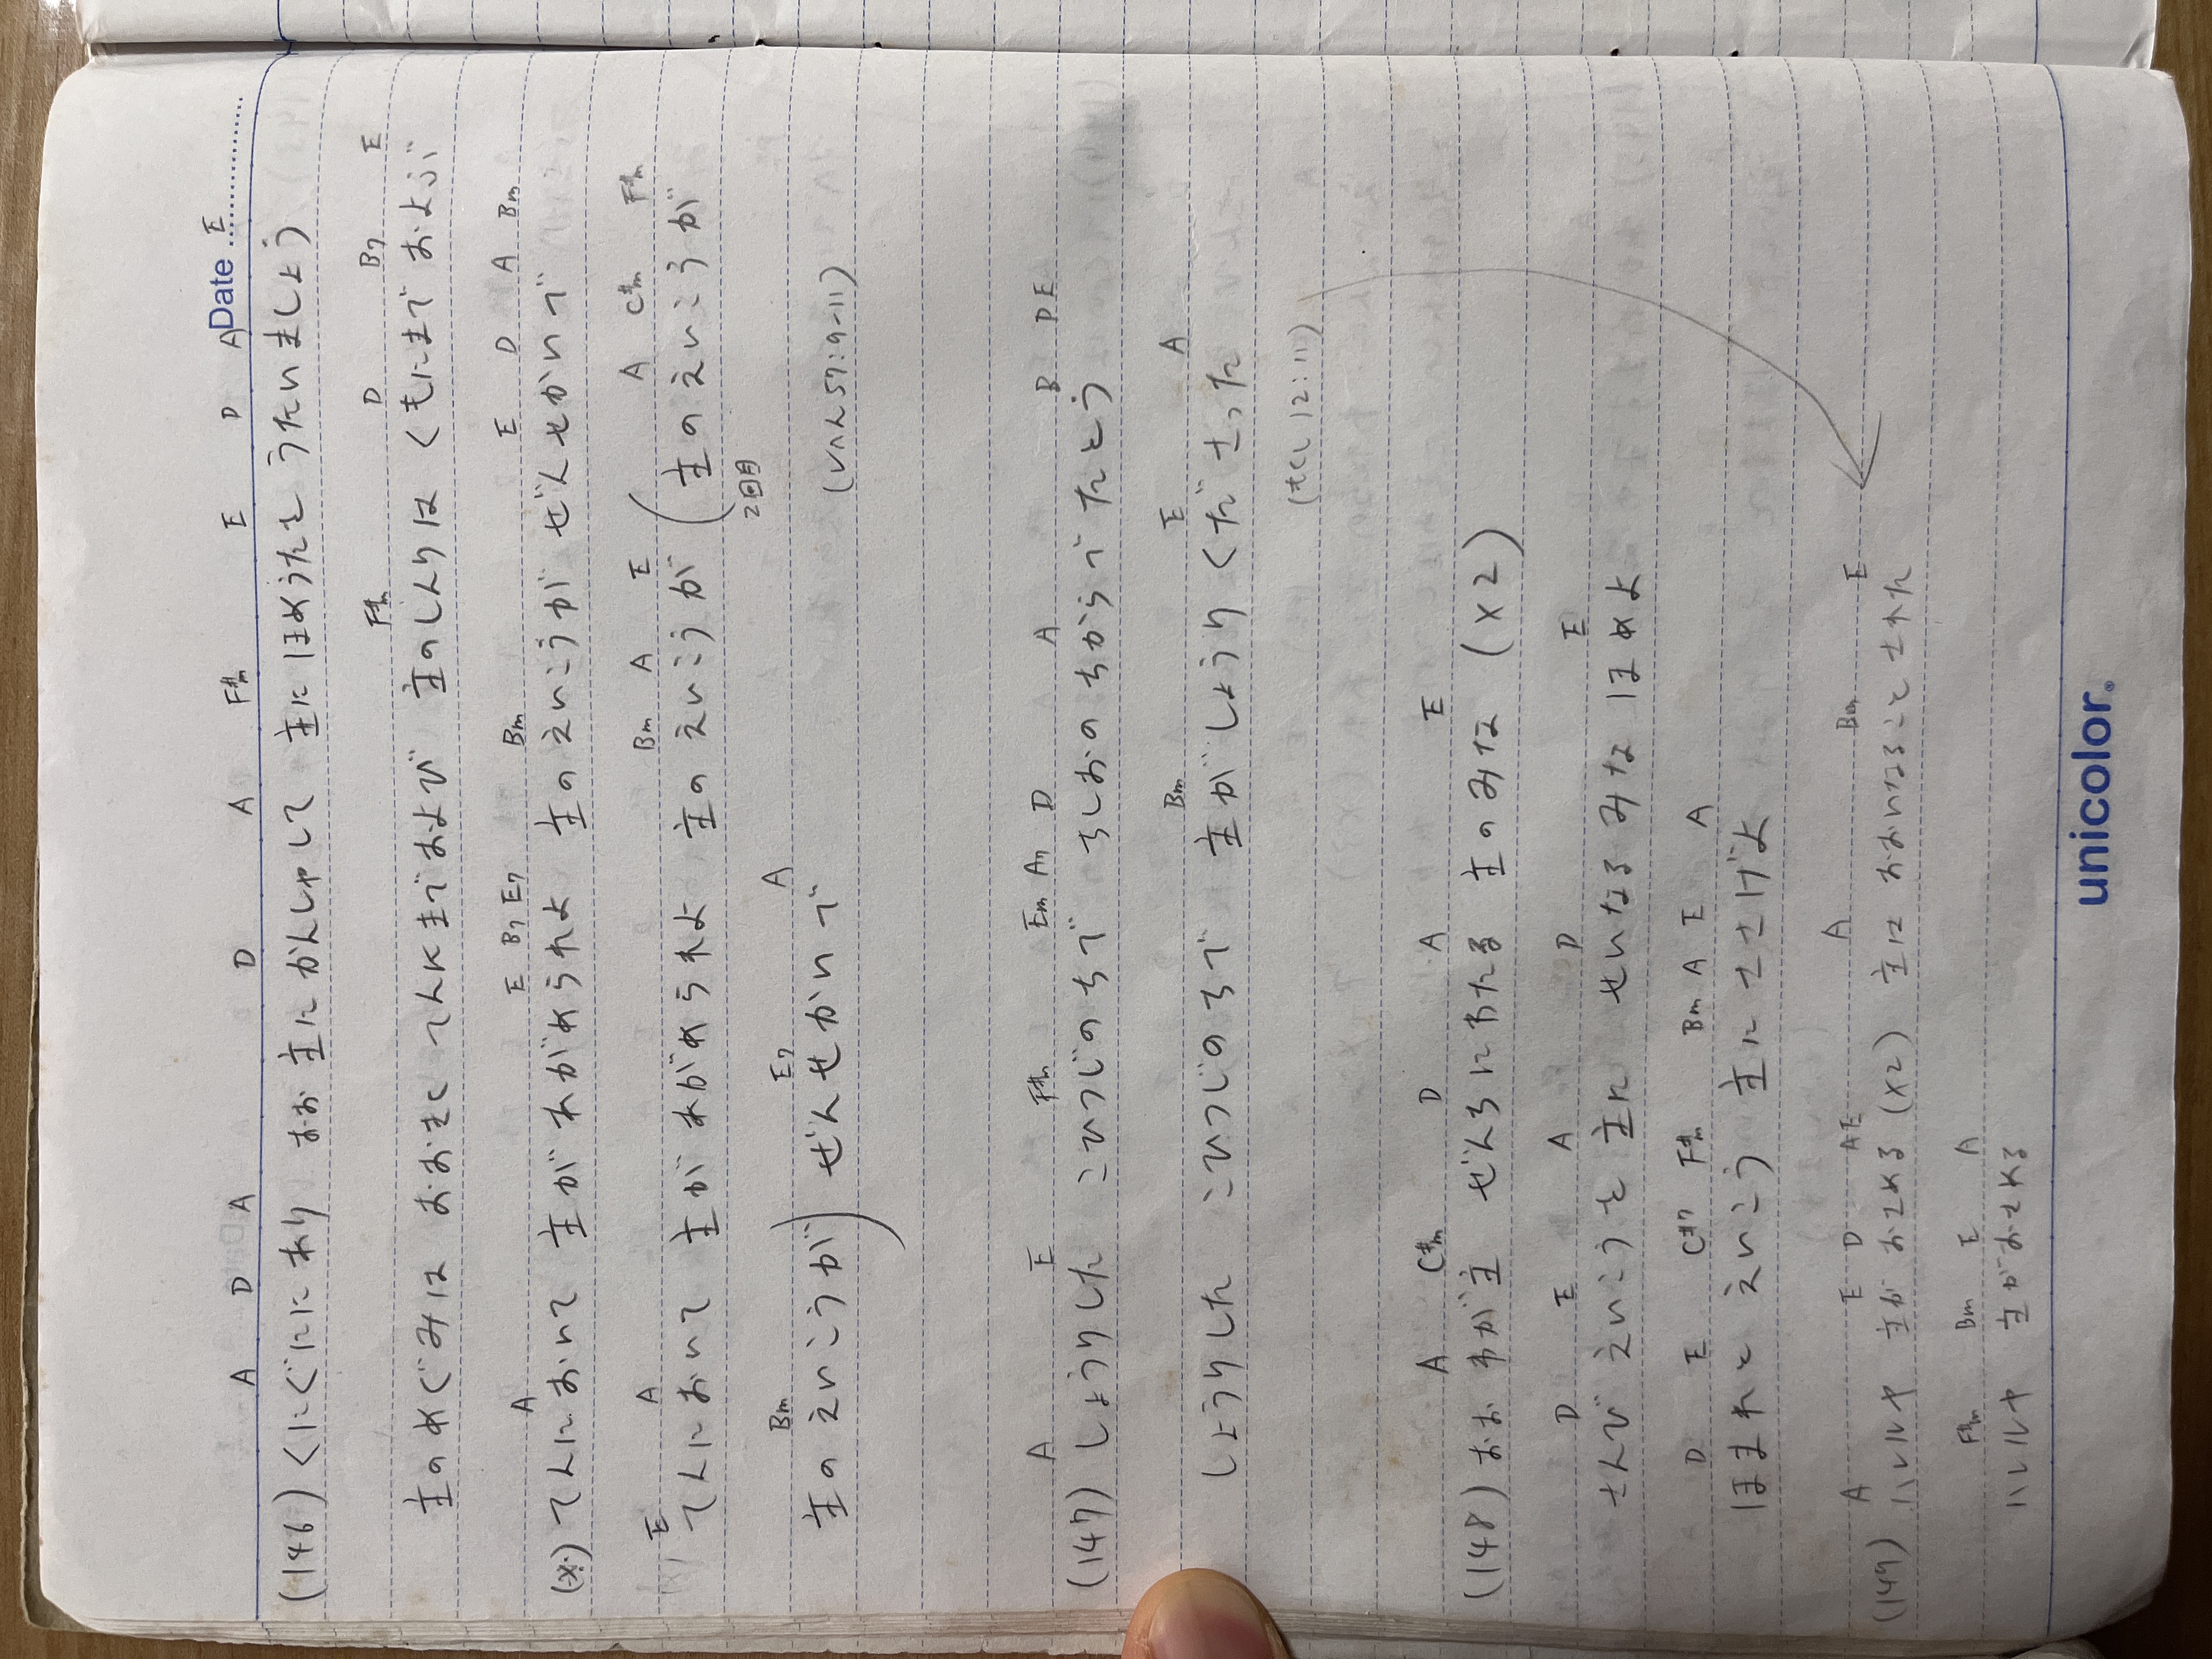 Date
A D A D A F#m E D A E
(146) くにぐににあり おお主にかんしゃして 主にほめうたを うたいましょう
F#m D B7 E
主のめぐみは おおきく てんにまでおよび 主のしんりは くもにまで およぶ
A E B7 E7 Bm E D A Bm
(※) てんにおいて 主があがめられよ 主のえいこうが ぜんせかいで
E A Bm A E A C#m F#m
てんにおいて 主があがめられよ 主のえいこうが (主のえいこうが
2回目
Bm E7 A
主のえいこうが) ぜんせかいで
(しへん57:9-11)
A E F#m Em A7 D A B D E
(147) しょうりした こひつじのちで ちしおのちからで たとう
Bm E A
しょうりした こひつじのちで 主がしょうりくださった
(もくし12:11)
A C#m D A E
(148) おお わが主 ぜんちにわたる 主のみな (×2)
D E A D E
さんび えいこうを 主に せいなるみな ほめよ
D E C#7 F#m Bm A E A
ほまれと えいこう 主に ささげよ
A E D A E A Bm E
(149) ハレルヤ 主がおさめる (×2) 主は おおいなることをされた
F#m Bm E A
ハレルヤ 主がおさめる
unicolor®